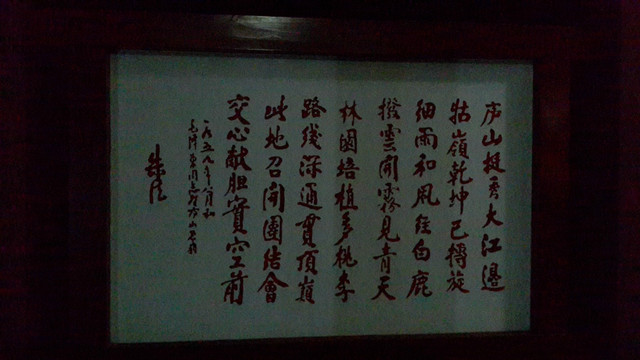 庐山挺秀大江邊
牯嶺乾坤已轉旋
细雨和风经白鹿
撥雲開霧見青天
林園培植多桃李
路线深通貫頂巔
此地召開團结會
交心献胆實空前
一九五九年八月和
毛泽东同志登庐山
朱德